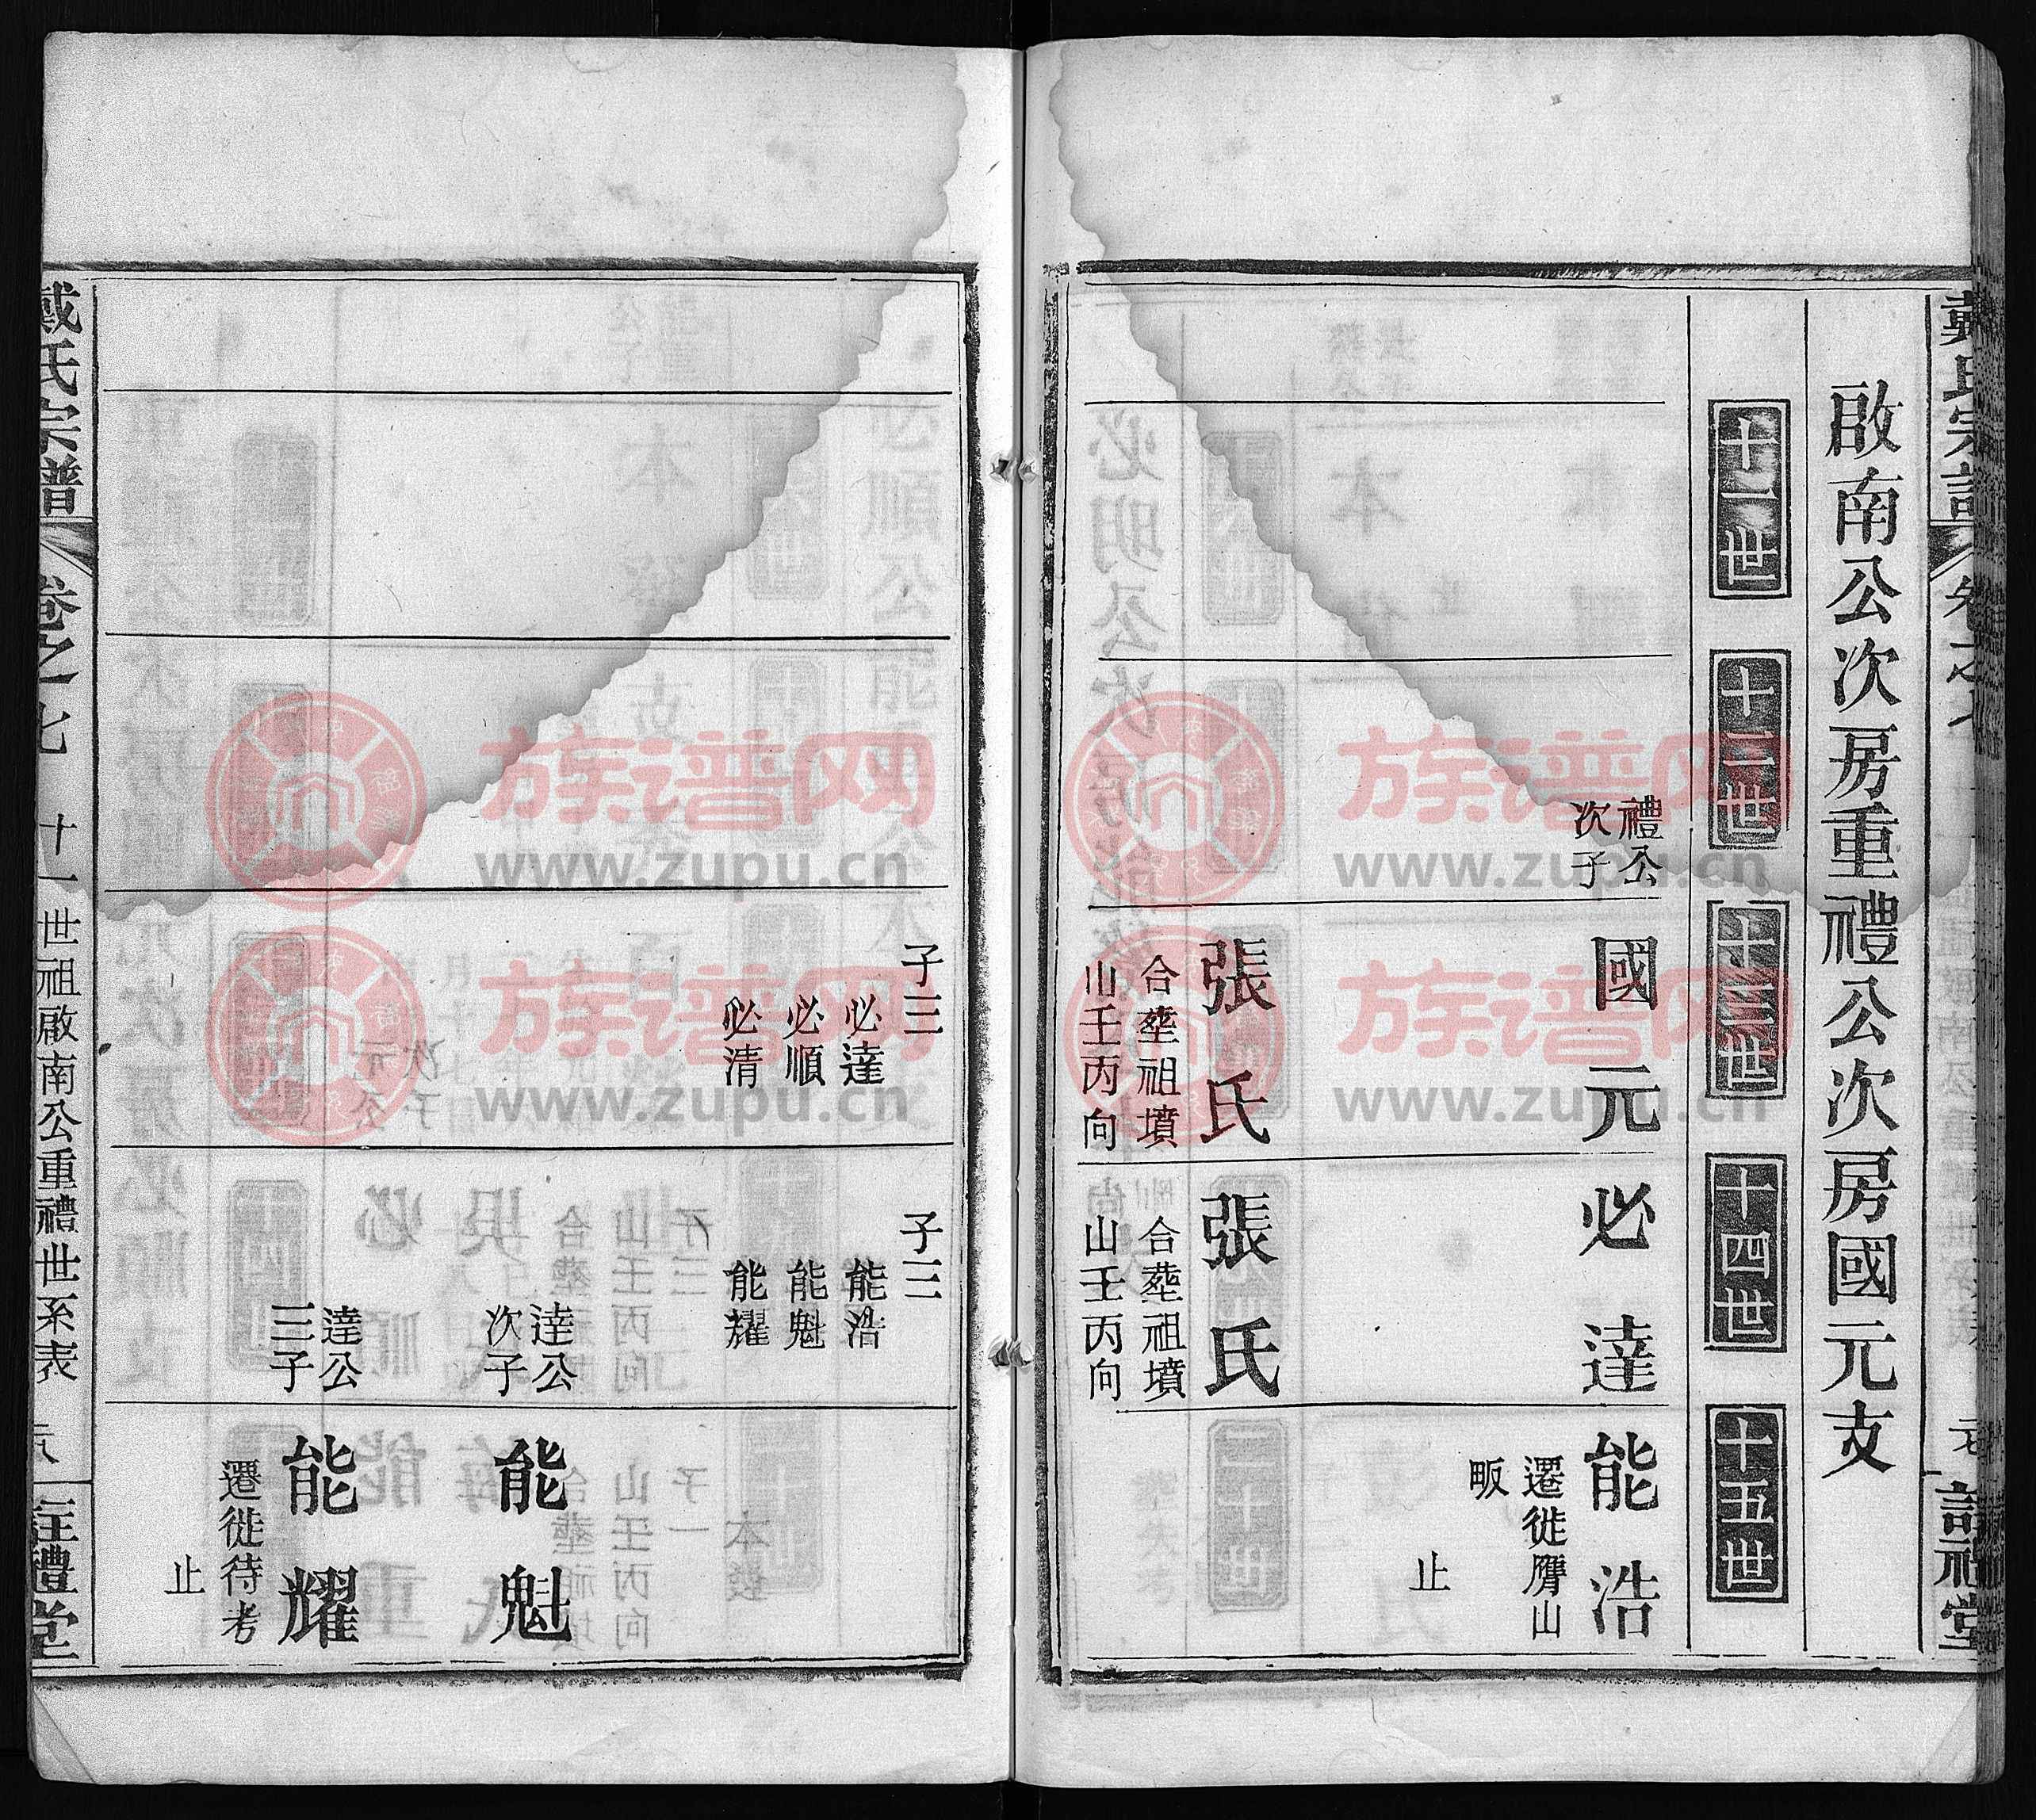 啟南公次房重禮公次房國元支
十一世
十二世
十三世
十四世
十五世
禮公
次子
國元
張氏
合塟祖墳
山壬丙向
必達
張氏
合塟祖墳
山壬丙向
能浩
遷徙鴈山
畈
止
子三
必達
必順
必清
子三
能浩
能魁
能耀
達公
次子
能魁
達公
三子
能耀
遷徙待考
止
戴氏宗譜
卷之七
十一世祖啟南公重禮世系表
註禮堂
族谱网
www.zupu.cn
族谱网
www.zupu.cn
族谱网
www.zupu.cn
族谱网
www.zupu.cn